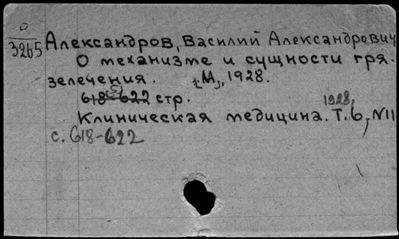 О
3265 Александров, Василий Александрович
О механизме и сущности гря.
зелечения. [М], 1928.
618-622 стр.
Клиническая медицина. 1928, Т. 6, N11
с. 618-622